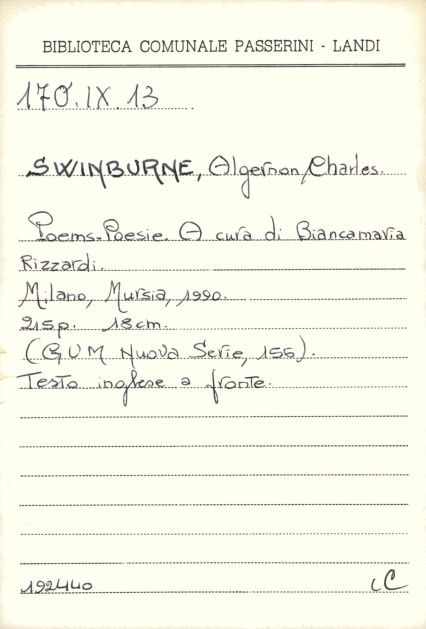 BIBLIOTECA COMUNALE PASSERINI - LANDI
170.IX.13
SWINBURNE, Algernon Charles.
Poems-Poesie. A cura di Biancamaria
Rizzardi.
Milano, Mursia, 1990.
215p. 18cm.
(GUM Nuova Serie, 156).
Testo inglese a fronte.
192440